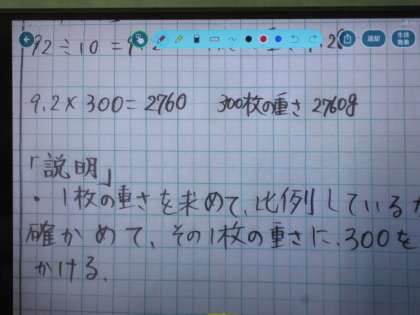 92÷10=9.2
9.2×300=2760 300枚の重さ 2760g
「説明」
・1枚の重さを求めて、比例している
確かめて、その1枚の重さに、300を
かける.